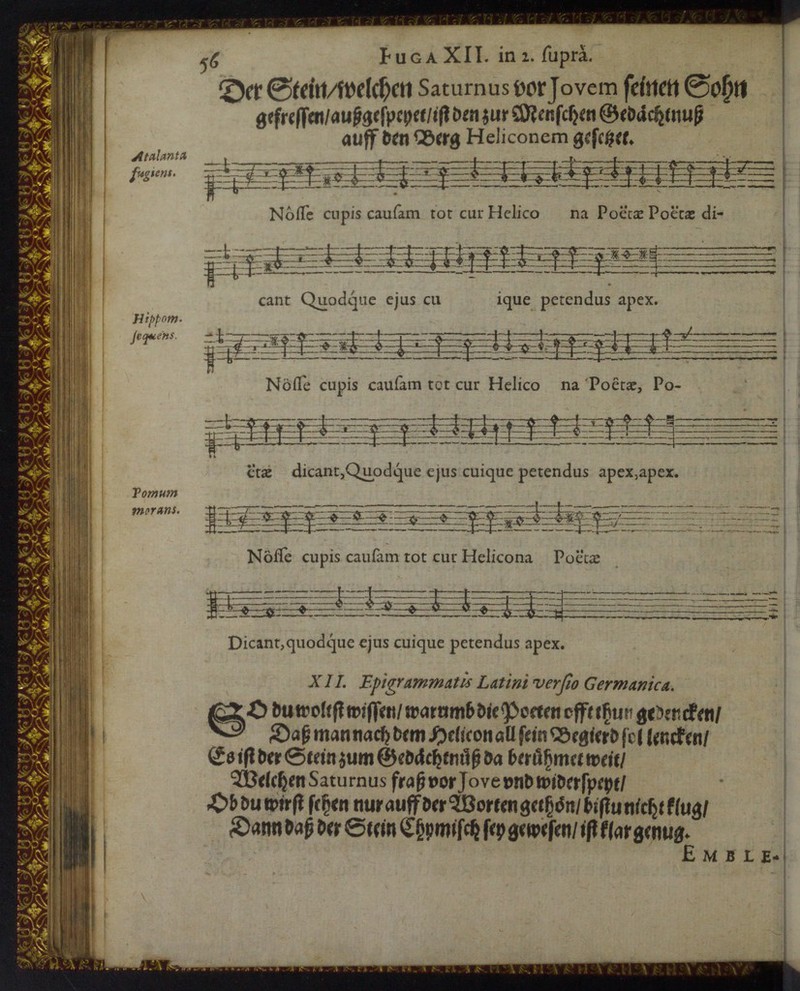 56
FUGA XII. in 2. ſuprà.
Der Stein/welchen Saturnus vor Jovem ſeinen Sohn
gefreſſen/außgeſpeyet/iſt den zur Menſchen Gedächtnuß
auff den Berg Heliconem geſetzet.
Atalanta
fugiens.
Nôſſe cupis cauſam tot cur Helico na Poëtæ Poëtæ di-
cant Quodque ejus cu ique petendus apex.
Hippom.
ſequens.
Nôſſe cupis cauſam tot cur Helico na Poëtæ, Po-
ëtæ dicant, Quodque ejus cuique petendus apex, apex.
Pomum
morans.
Nôſſe cupis cauſam tot cur Helicona Poëtæ
Dicant, quodque ejus cuique petendus apex.
XII. Epigrammatis Latini verſio Germanica.
SO du woltſt wiſſen/ warumb die Poeten offt thun gedencken/
Daß man nach dem Helicon all ſein Begierd ſol lencken/
Es iſt der Stein zum Gedächtnüß da berühmet weit/
Welchen Saturnus fraß vor Jove vnd widerſpeyt/
Ob du wirſt ſehen nur auff der Worten gethön/ biſtu nicht klug/
Dann daß der Stein Chymiſch ſey geweſen/ iſt klar genug.
EMBLE-